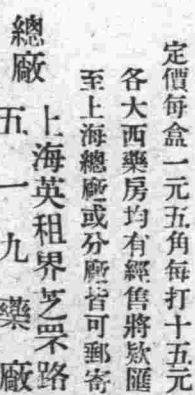 定價每盒一元五角每打十五元
各大西藥房均有經售將欵匯
至上海總廠或分廠皆可郵寄
總廠 上海英租界芝罘路
五一九藥廠